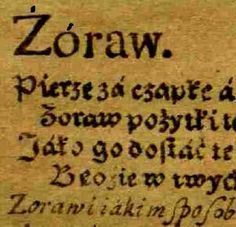 Żóraw.
Pierze zá czapkę á
Żoraw pożytki te
Jáko go dostáć te
W twych
Zorawi iakim sposob